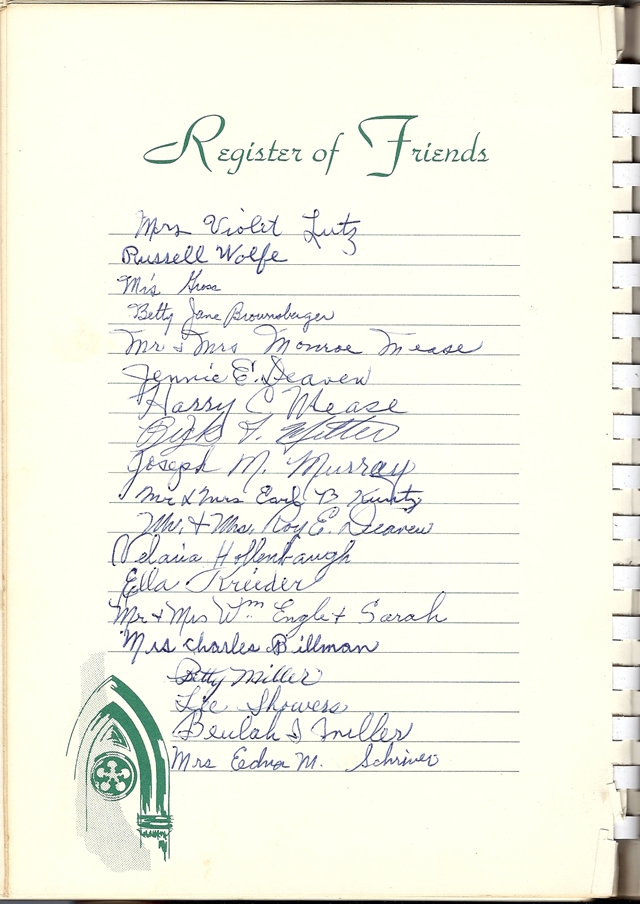 Register of Friends
Mrs Violet Lutz
Russell Wolfe
Mrs Gross
Betty Jane Brownsberger
Mr & Mrs Monroe Mease
Jennie E. Deaven
Harry C Mease
Joseph M. Murray
Mr & Mrs Earl B Kuntz
Mr. & Mrs. Roy E. Deaven
Hollenbaugh
Ella Kreider
Mr & Mrs Wm Engle & Sarah
Mrs Charles Billman
Betty Miller
Showers
Beulah I Miller
Mrs Eedna M. Schriver